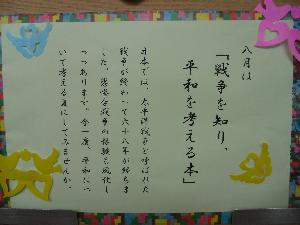 八月は
「戦争を知り、
平和を考える本」
日本では、太平洋戦争と呼ばれた
戦争が終わって六十八年が経ちま
した。悲惨な戦争の体験も風化し
つつあります。今一度、平和につ
いて考える夏にしてみませんか。